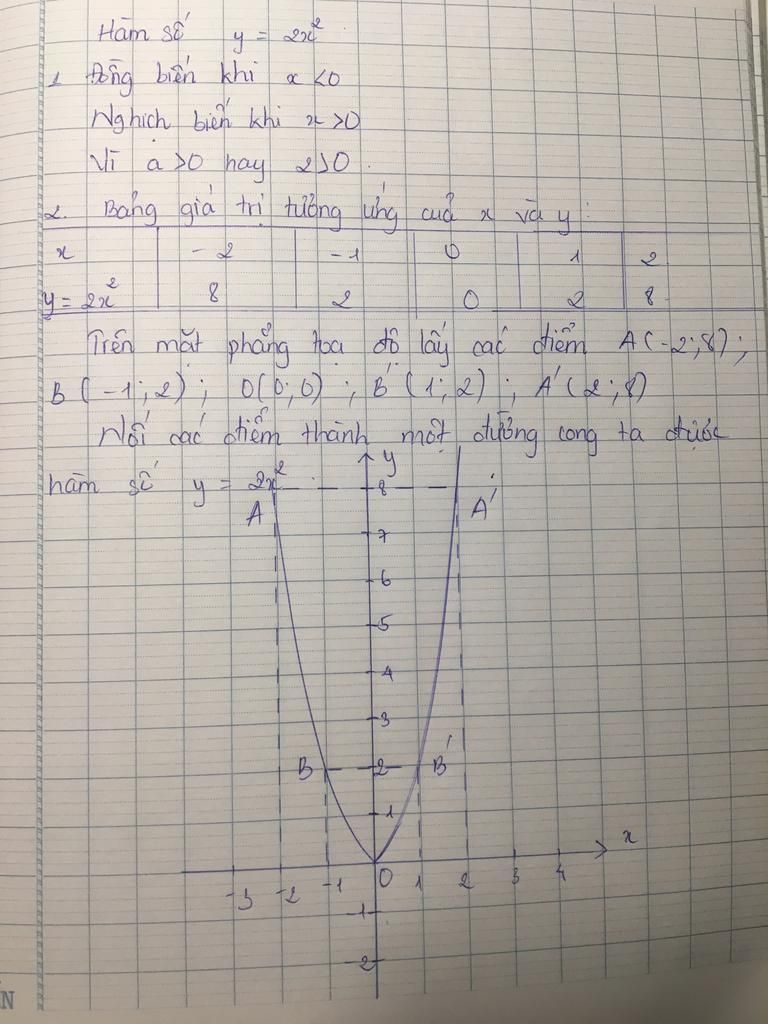 Hàm số y = 2x²
1. Đồng biến khi x < 0
Nghịch biến khi x > 0
Vì a > 0 hay 2 > 0.
2. Bảng giá trị tương ứng của x và y:
x -2 -1 0 1 2
y = 2x² 8 2 0 2 8
Trên mặt phẳng tọa độ lấy các điểm A(-2;8);
B(-1;2); O(0;0); B'(1;2); A'(2;8)
Nối các điểm thành một đường cong ta được
hàm số y = 2x²
y
8
A A'
7
6
5
4
3
B 2 B'
1
x
-3 -2 -1 0 1 2 3 4
-1
-2
N